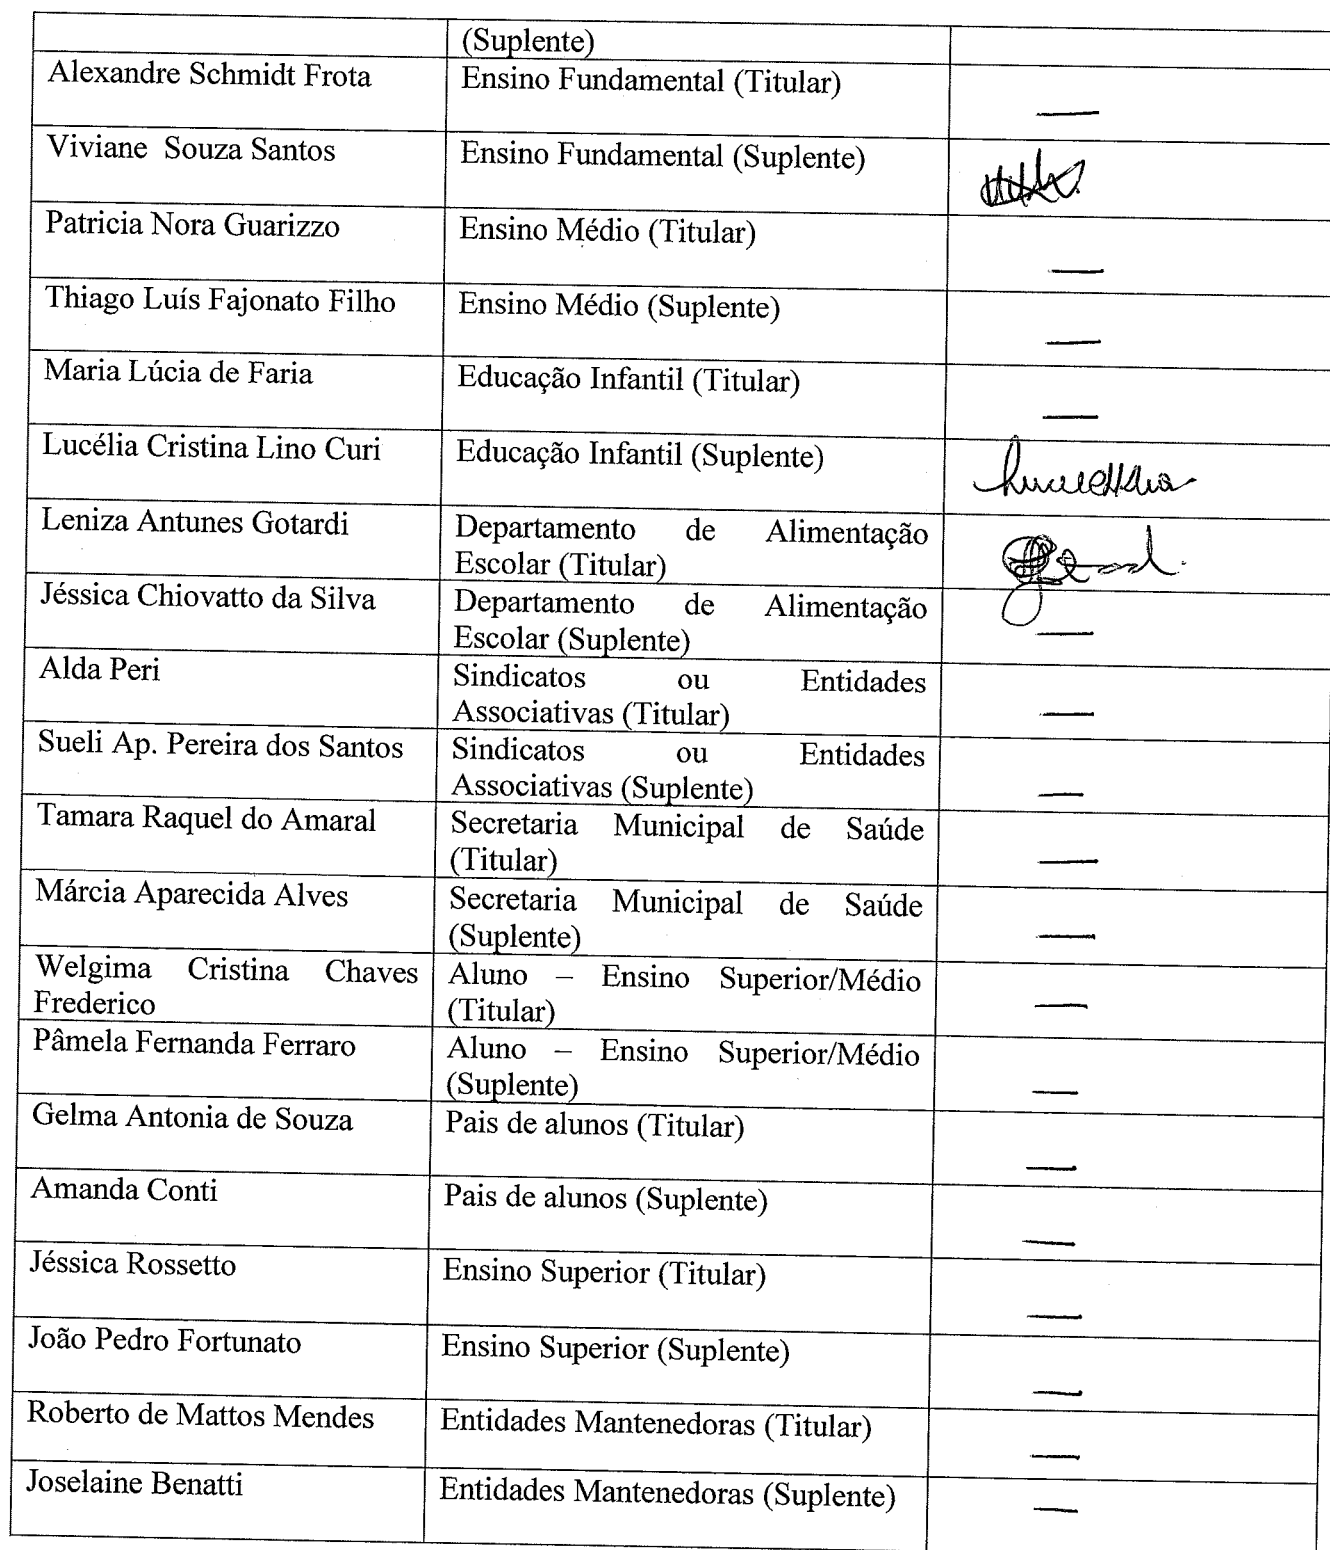 (Suplente)
Alexandre Schmidt Frota
Ensino Fundamental (Titular)
—
Viviane Souza Santos
Ensino Fundamental (Suplente)
Patricia Nora Guarizzo
Ensino Médio (Titular)
—
Thiago Luís Fajonato Filho
Ensino Médio (Suplente)
—
Maria Lúcia de Faria
Educação Infantil (Titular)
—
Lucélia Cristina Lino Curi
Educação Infantil (Suplente)
Leniza Antunes Gotardi
Departamento de Alimentação
Escolar (Titular)
Jéssica Chiovatto da Silva
Departamento de Alimentação
Escolar (Suplente)
—
Alda Peri
Sindicatos ou Entidades
Associativas (Titular)
—
Sueli Ap. Pereira dos Santos
Sindicatos ou Entidades
Associativas (Suplente)
—
Tamara Raquel do Amaral
Secretaria Municipal de Saúde
(Titular)
—
Márcia Aparecida Alves
Secretaria Municipal de Saúde
(Suplente)
—
Welgima Cristina Chaves
Frederico
Aluno – Ensino Superior/Médio
(Titular)
—
Pâmela Fernanda Ferraro
Aluno – Ensino Superior/Médio
(Suplente)
—
Gelma Antonia de Souza
Pais de alunos (Titular)
—
Amanda Conti
Pais de alunos (Suplente)
—
Jéssica Rossetto
Ensino Superior (Titular)
—
João Pedro Fortunato
Ensino Superior (Suplente)
—
Roberto de Mattos Mendes
Entidades Mantenedoras (Titular)
—
Joselaine Benatti
Entidades Mantenedoras (Suplente)
—